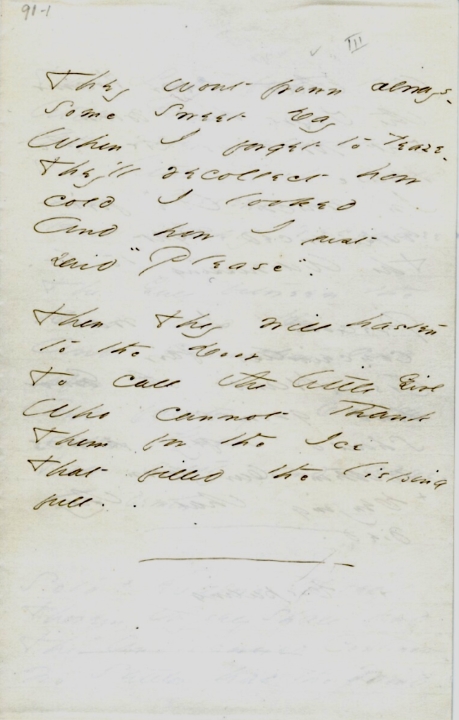 91-1
III
They wont frown always -
Some Sweet Day
When I forget to teaze -
They'll recollect how
cold I looked
And how I just
said "Please".
Then they will hasten
to the door
To call the little Girl
Who cannot thank
Them for the Ice
That filled the lisping
full.